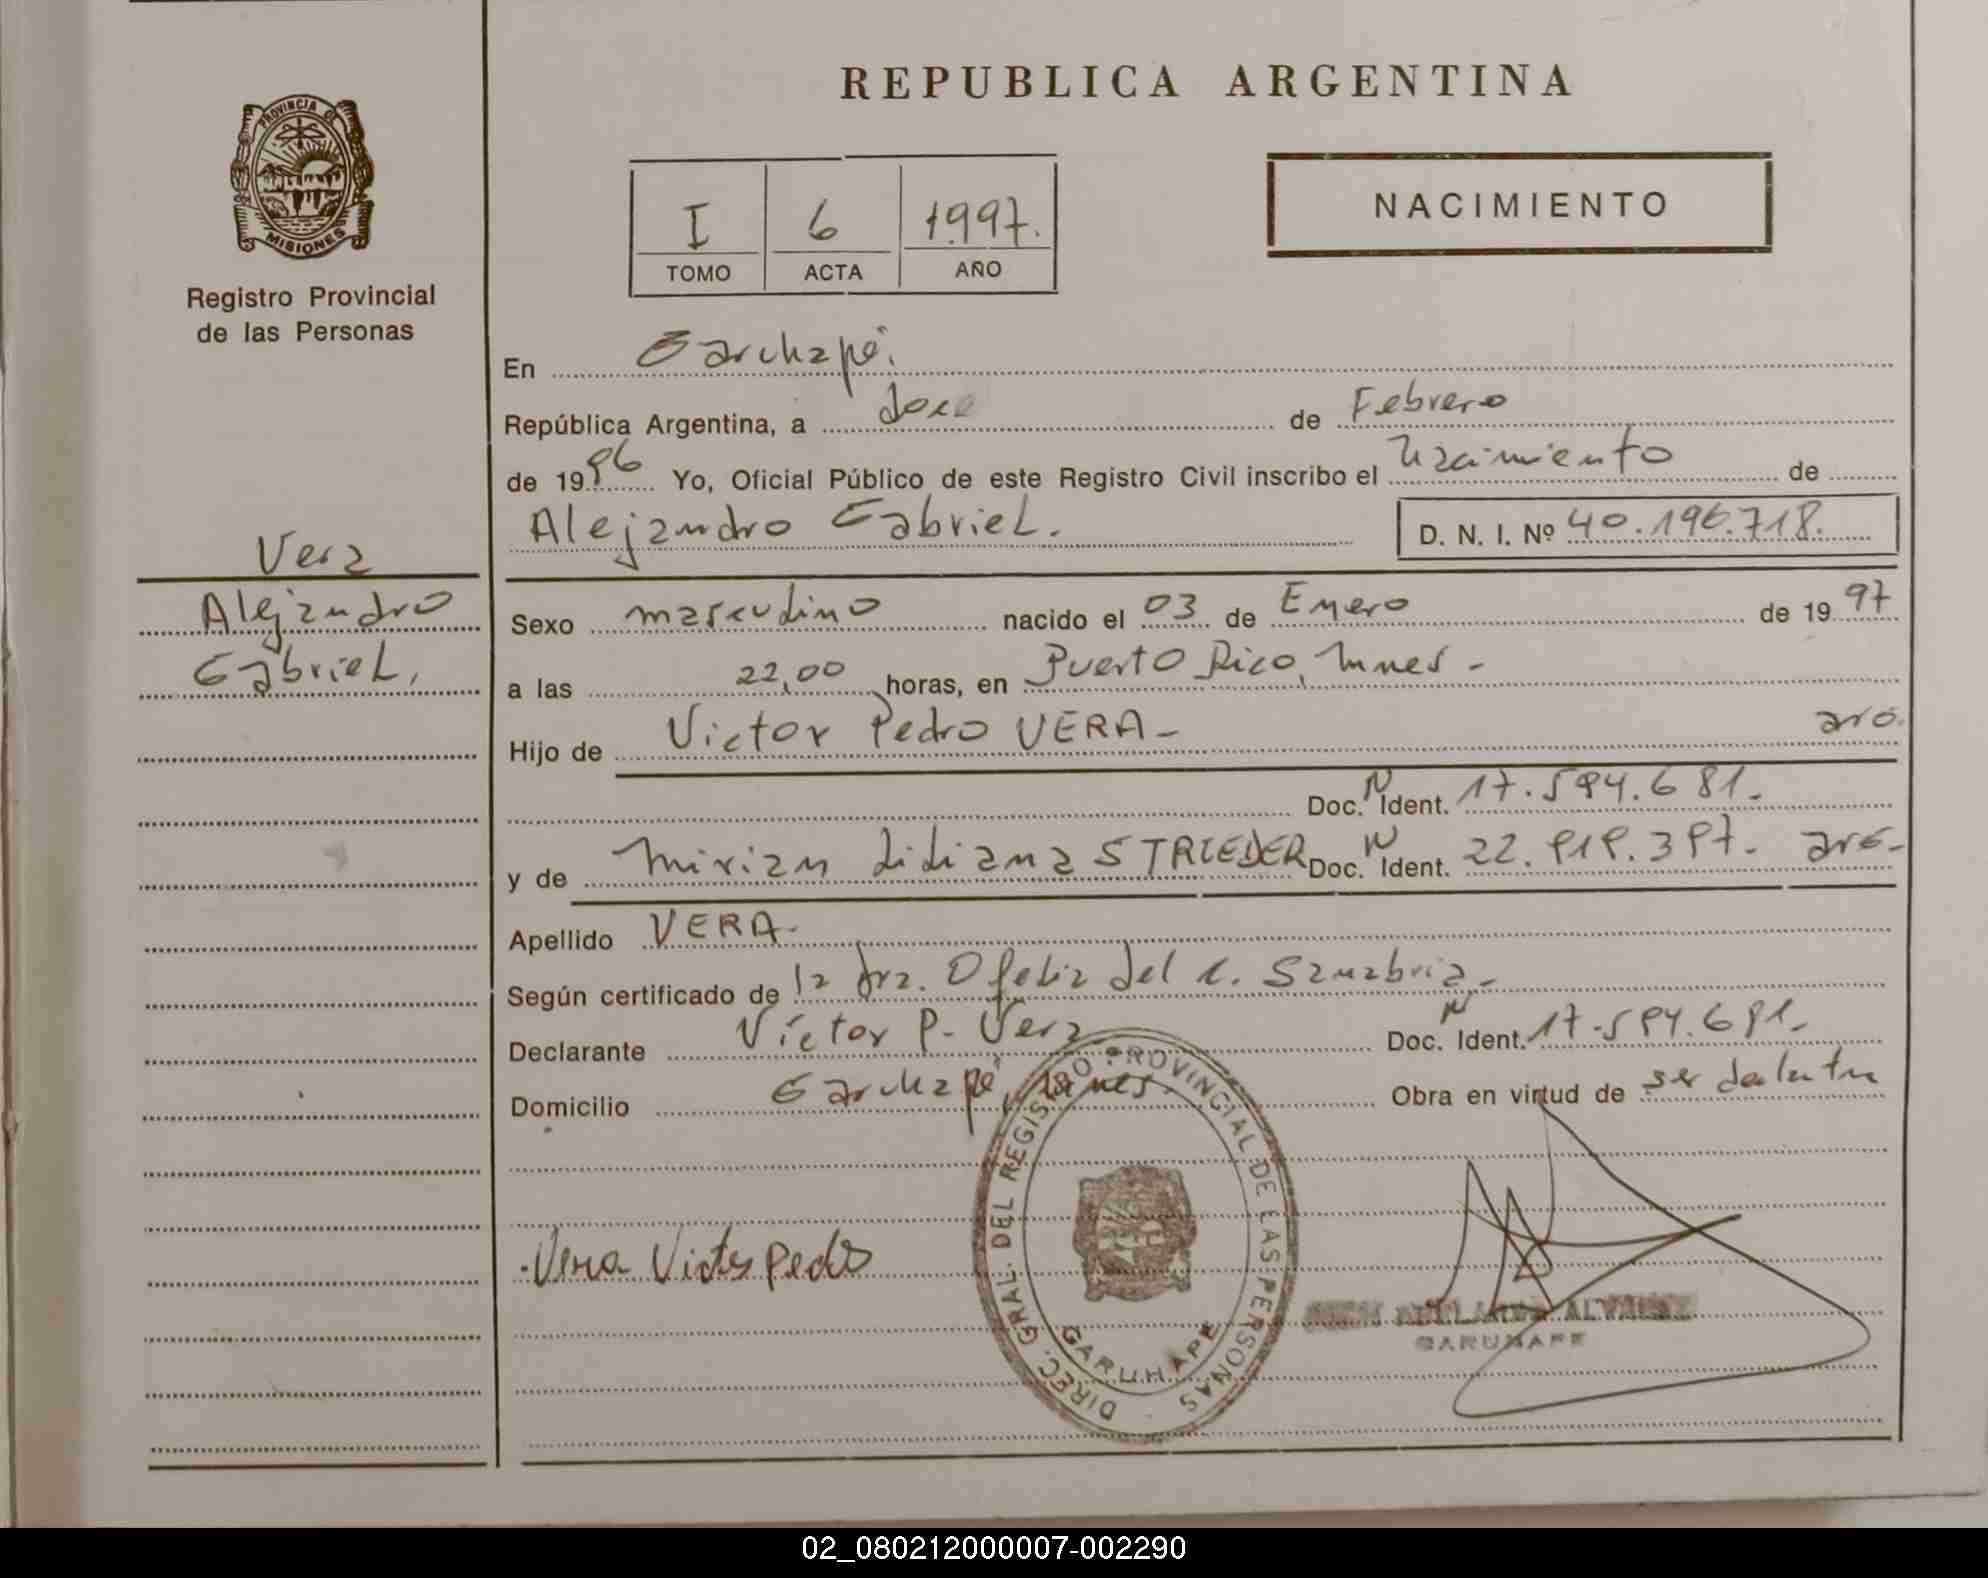 REPUBLICA ARGENTINA
PROVINCIA DE MISIONES
Registro Provincial
de las Personas
I 6 1997.
TOMO ACTA AÑO
NACIMIENTO
En Garuhapé.
República Argentina, a doce de Febrero
de 1996 Yo, Oficial Público de este Registro Civil inscribo el nacimiento de
Alejandro Gabriel. D. N. I. Nº 40.196.718.
Vera
Alejandro
Gabriel.
Sexo masculino nacido el 03 de Enero de 1997
a las 22,00 horas, en Puerto Rico, Mnes -
Hijo de Victor Pedro VERA - arg.
Doc. N Ident. 17.594.681.
y de Mirian Liliana STRIEDER Doc. N Ident. 22.919.397. arg-
Apellido VERA-
Según certificado de la dra. Ofelia del C. Sanabria.-
Declarante Víctor P. Vera Doc. N Ident. 17.594.681.-
Domicilio Garuhapé, Mnes. Obra en virtud de ser
DIREC. GRAL. DEL REGISTRO PROVINCIAL DE LAS PERSONAS
GARUHAPE
Vera Victor Pedro
GARUHAPE
02_080212000007-002290